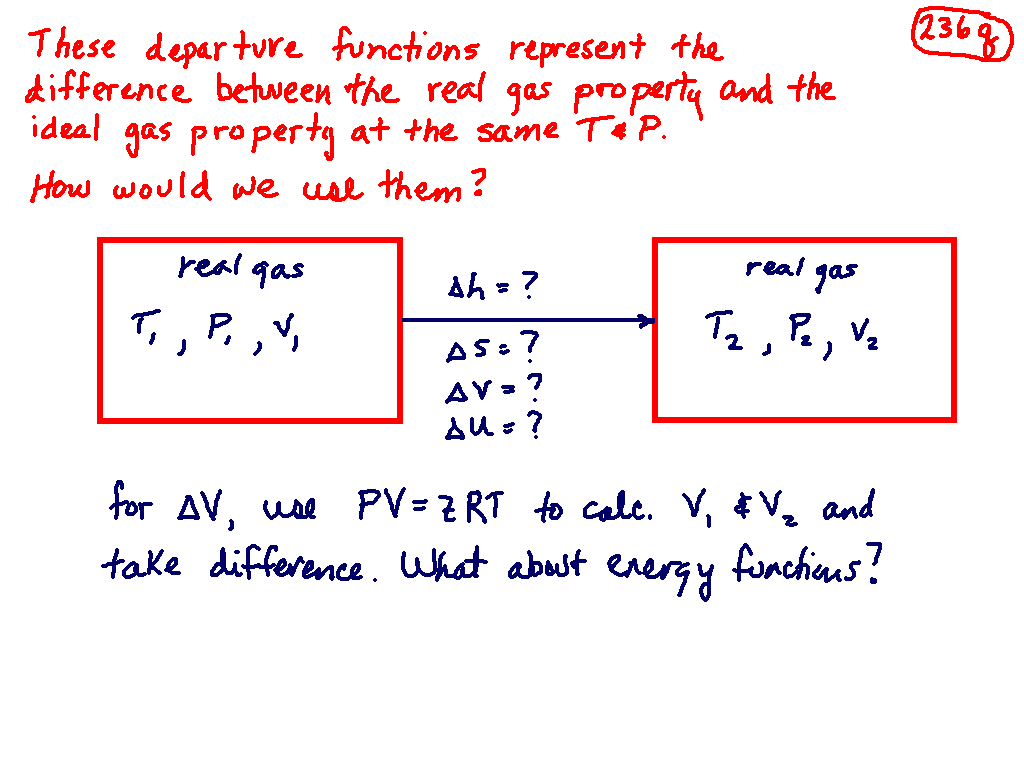 236g
These departure functions represent the
difference between the real gas property and the
ideal gas property at the same T & P.
How would we use them?
real gas
T₁, P₁, V₁
Δh = ?
Δs = ?
ΔV = ?
Δu = ?
real gas
T₂, P₂, V₂
for ΔV, use PV = zRT to calc. V₁ & V₂ and
take difference. What about energy functions?